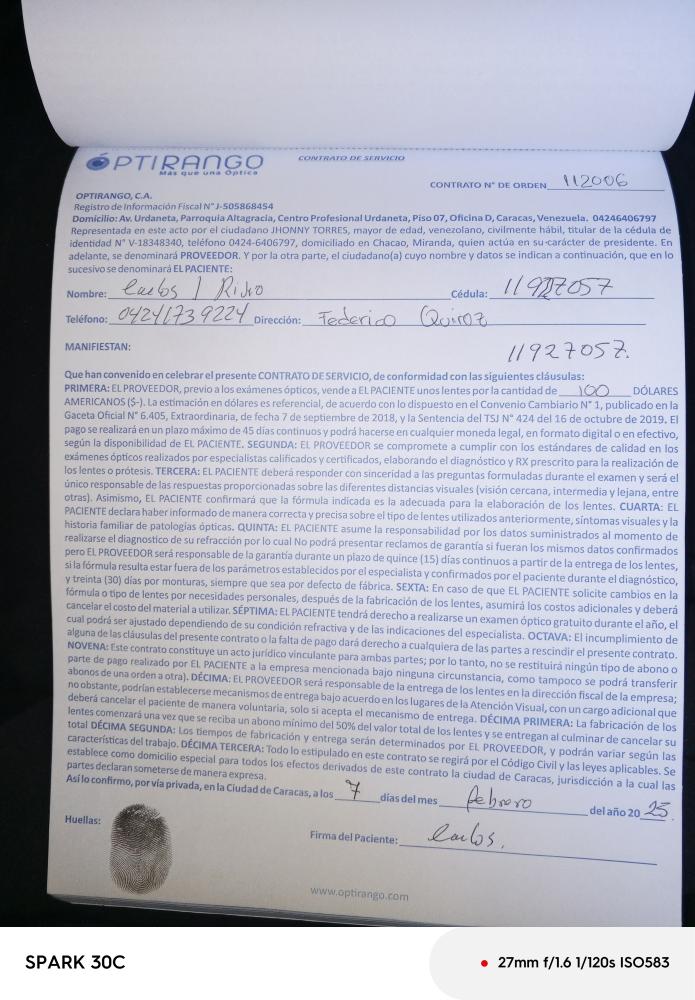 ÓPTIRANGO
Más que una Óptica
CONTRATO DE SERVICIO
CONTRATO N° DE ORDEN 112006
OPTIRANGO, C.A.
Registro de Información Fiscal N° J-505868454
Domicilio: Av. Urdaneta, Parroquia Altagracia, Centro Profesional Urdaneta, Piso 07, Oficina D, Caracas, Venezuela. 04246406797
Representada en este acto por el ciudadano JHONNY TORRES, mayor de edad, venezolano, civilmente hábil, titular de la cédula de
identidad N° V-18348340, teléfono 0424-6406797, domiciliado en Chacao, Miranda, quien actúa en su carácter de presidente. En
adelante, se denominará PROVEEDOR. Y por la otra parte, el ciudadano(a) cuyo nombre y datos se indican a continuación, que en lo
sucesivo se denominará EL PACIENTE:
Nombre: Carlos Cédula: 11927057
Teléfono: 04241739224 Dirección: Federico Quiroz
MANIFIESTAN: 11927057.
Que han convenido en celebrar el presente CONTRATO DE SERVICIO, de conformidad con las siguientes cláusulas:
PRIMERA: EL PROVEEDOR, previo a los exámenes ópticos, vende a EL PACIENTE unos lentes por la cantidad de 100 DÓLARES
AMERICANOS ($-). La estimación en dólares es referencial, de acuerdo con lo dispuesto en el Convenio Cambiario N° 1, publicado en la
Gaceta Oficial N° 6.405, Extraordinaria, de fecha 7 de septiembre de 2018, y la Sentencia del TSJ N° 424 del 16 de octubre de 2019. El
pago se realizará en un plazo máximo de 45 días continuos y podrá hacerse en cualquier moneda legal, en formato digital o en efectivo,
según la disponibilidad de EL PACIENTE. SEGUNDA: EL PROVEEDOR se compromete a cumplir con los estándares de calidad en los
exámenes ópticos realizados por especialistas calificados y certificados, elaborando el diagnóstico y RX prescrito para la realización de
los lentes o prótesis. TERCERA: EL PACIENTE deberá responder con sinceridad a las preguntas formuladas durante el examen y será el
único responsable de las respuestas proporcionadas sobre las diferentes distancias visuales (visión cercana, intermedia y lejana, entre
otras). Asimismo, EL PACIENTE confirmará que la fórmula indicada es la adecuada para la elaboración de los lentes. CUARTA: EL
PACIENTE declara haber informado de manera correcta y precisa sobre el tipo de lentes utilizados anteriormente, síntomas visuales y la
historia familiar de patologías ópticas. QUINTA: EL PACIENTE asume la responsabilidad por los datos suministrados al momento de
realizarse el diagnostico de su refracción por lo cual No podrá presentar reclamos de garantía si fueran los mismos datos confirmados
pero EL PROVEEDOR será responsable de la garantía durante un plazo de quince (15) días continuos a partir de la entrega de los lentes,
si la fórmula resulta estar fuera de los parámetros establecidos por el especialista y confirmados por el paciente durante el diagnóstico,
y treinta (30) días por monturas, siempre que sea por defecto de fábrica. SEXTA: En caso de que EL PACIENTE solicite cambios en la
fórmula o tipo de lentes por necesidades personales, después de la fabricación de los lentes, asumirá los costos adicionales y deberá
cancelar el costo del material a utilizar. SÉPTIMA: EL PACIENTE tendrá derecho a realizarse un examen óptico gratuito durante el año, el
cual podrá ser ajustado dependiendo de su condición refractiva y de las indicaciones del especialista. OCTAVA: El incumplimiento de
alguna de las cláusulas del presente contrato o la falta de pago dará derecho a cualquiera de las partes a rescindir el presente contrato.
NOVENA: Este contrato constituye un acto jurídico vinculante para ambas partes; por lo tanto, no se restituirá ningún tipo de abono o
parte de pago realizado por EL PACIENTE a la empresa mencionada bajo ninguna circunstancia, como tampoco se podrá transferir
abonos de una orden a otra). DÉCIMA: EL PROVEEDOR será responsable de la entrega de los lentes en la dirección fiscal de la empresa;
no obstante, podrían establecerse mecanismos de entrega bajo acuerdo en los lugares de la Atención Visual, con un cargo adicional que
deberá cancelar el paciente de manera voluntaria, solo si acepta el mecanismo de entrega. DÉCIMA PRIMERA: La fabricación de los
lentes comenzará una vez que se reciba un abono mínimo del 50% del valor total de los lentes y se entregan al culminar de cancelar su
total DÉCIMA SEGUNDA: Los tiempos de fabricación y entrega serán determinados por EL PROVEEDOR, y podrán variar según las
características del trabajo. DÉCIMA TERCERA: Todo lo estipulado en este contrato se regirá por el Código Civil y las leyes aplicables. Se
establece como domicilio especial para todos los efectos derivados de este contrato la ciudad de Caracas, jurisdicción a la cual las
partes declaran someterse de manera expresa.
Así lo confirmo, por vía privada, en la Ciudad de Caracas, a los 7 días del mes febrero del año 2025.
Huellas:
Firma del Paciente: Carlos.
www.optirango.com
SPARK 30C
27mm f/1.6 1/120s ISO583